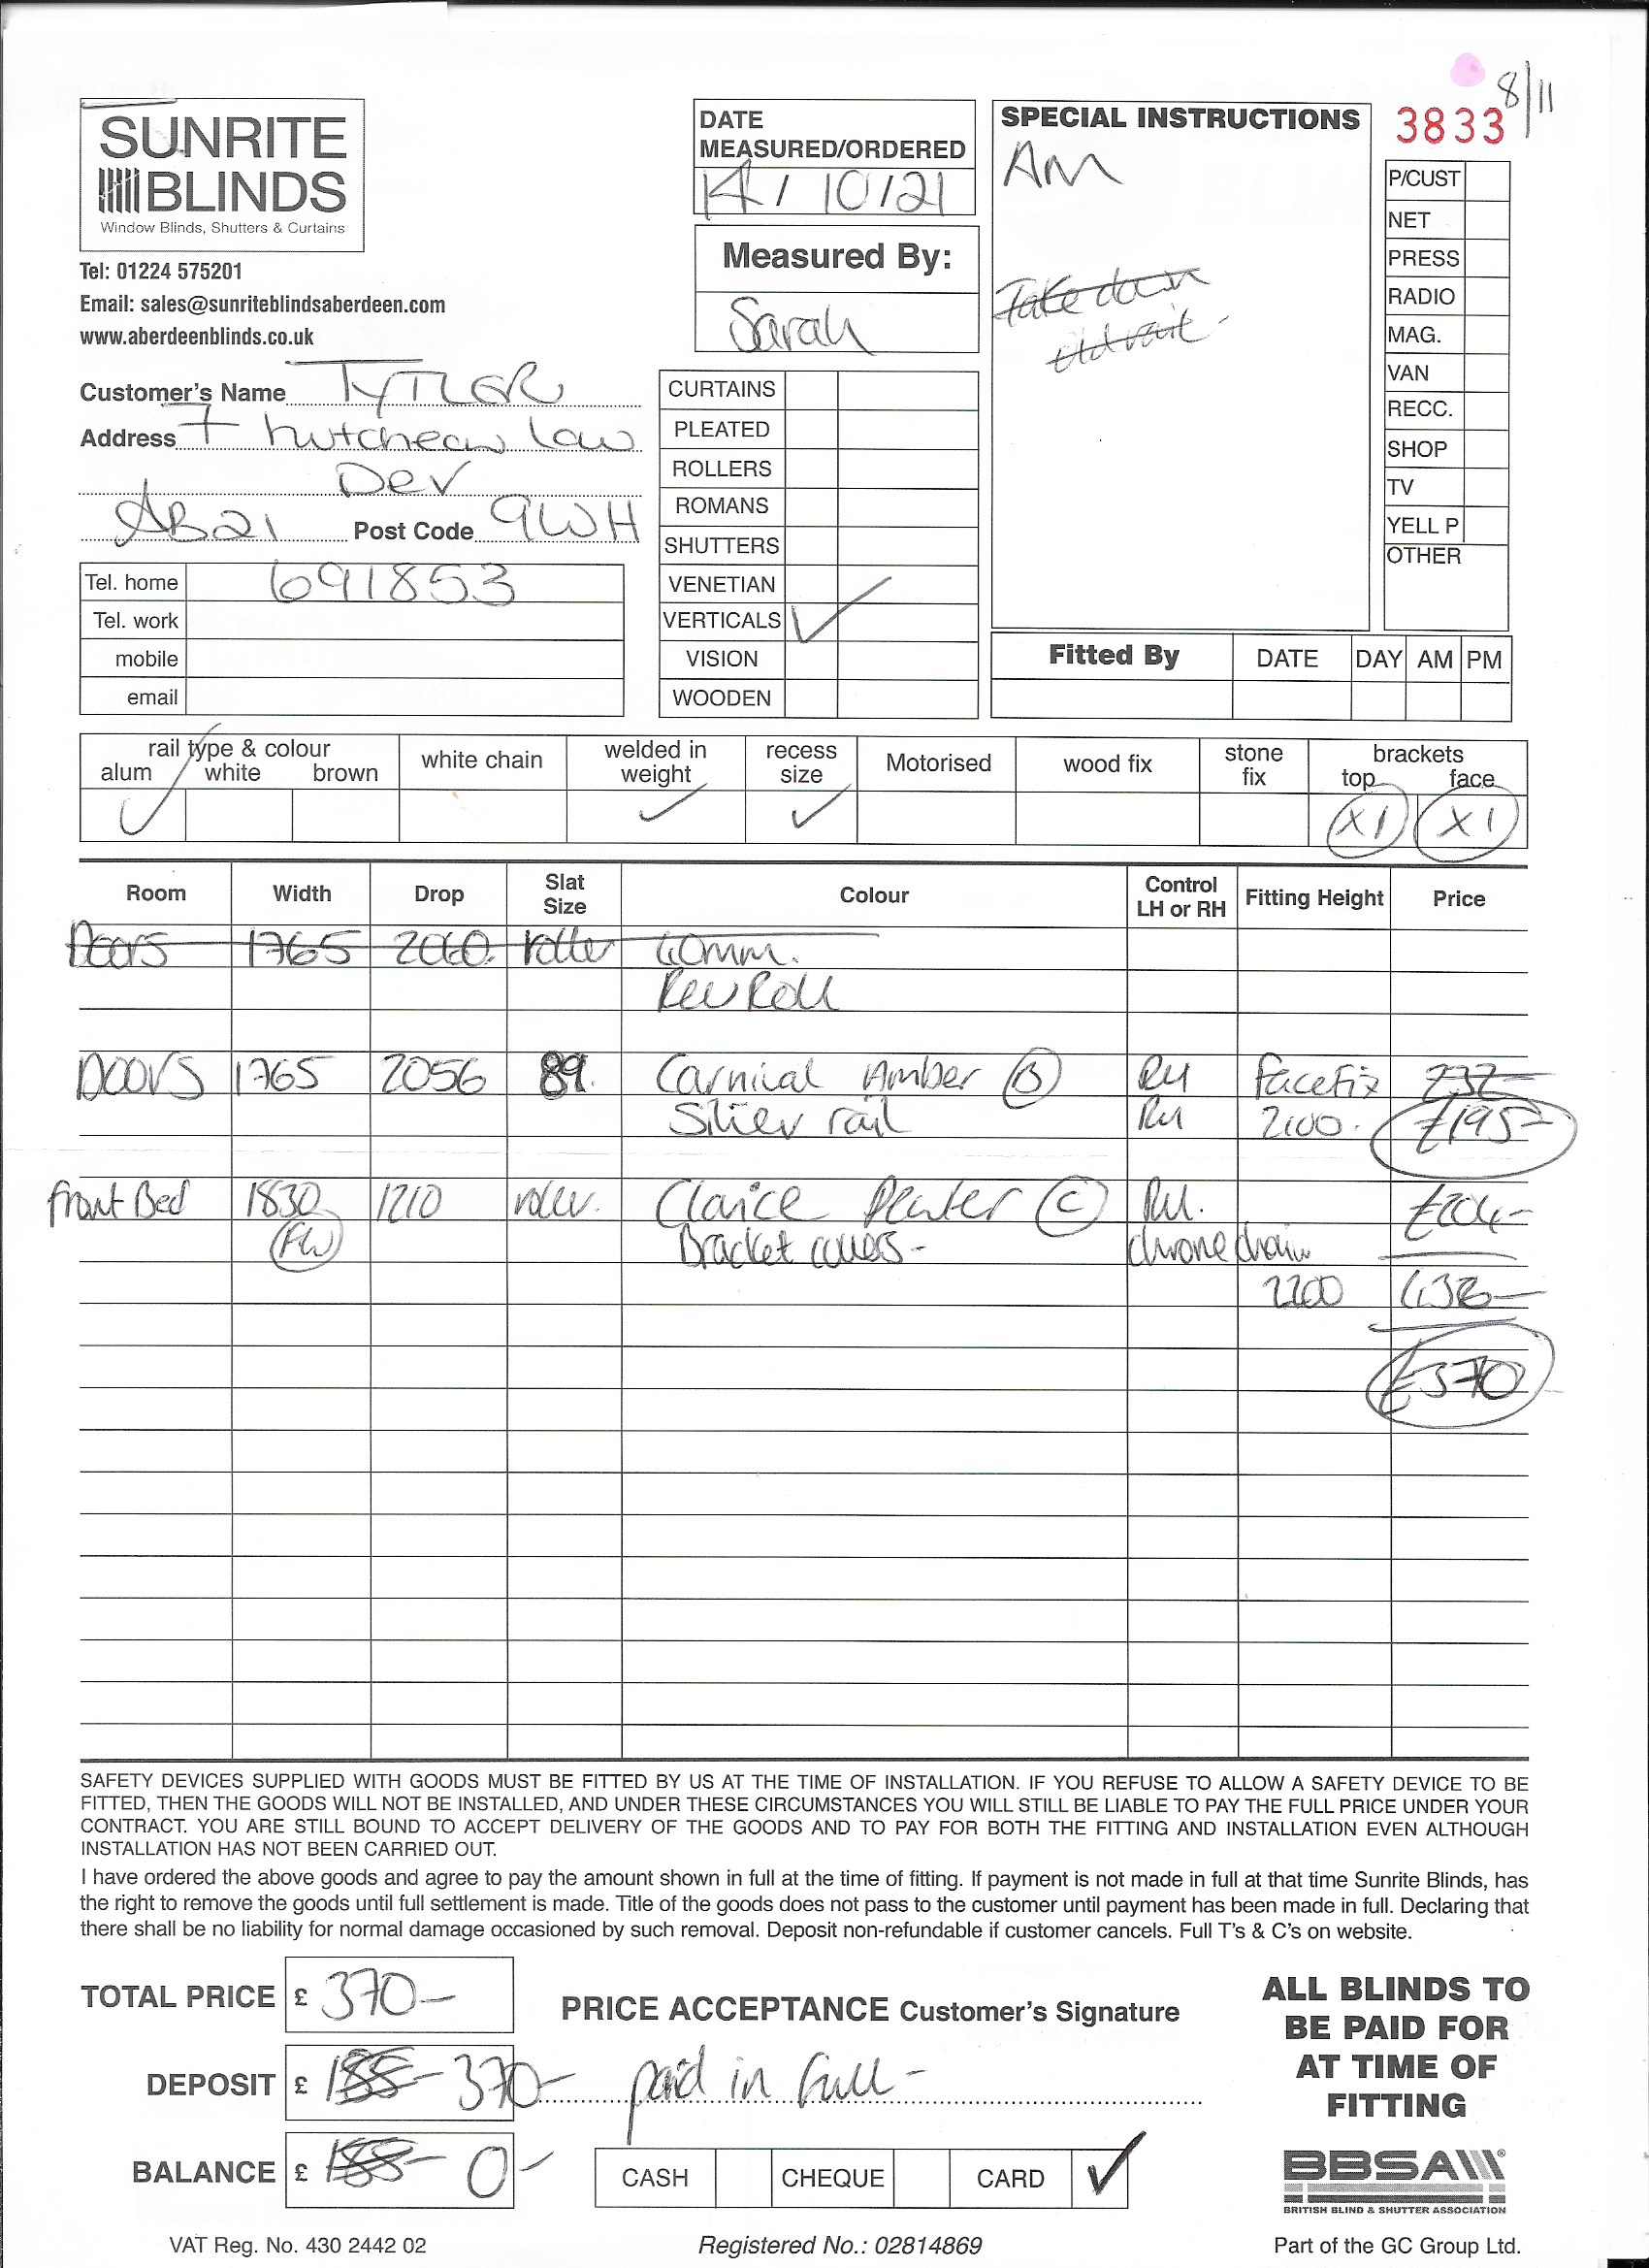 8/11
3833
SUNRITE
BLINDS
Window Blinds, Shutters & Curtains
Tel: 01224 575201
Email: sales@sunriteblindsaberdeen.com
www.aberdeenblinds.co.uk
DATE
MEASURED/ORDERED
14/10/21
Measured By:
Sarah
SPECIAL INSTRUCTIONS
AM
Take down
old rail -
P/CUST
NET
PRESS
RADIO
MAG.
VAN
RECC.
SHOP
TV
YELL P
OTHER
Customer's Name TYTLER
Address 7 hutcheon Low
Dev
AB21 Post Code 9WH
Tel. home 691853
Tel. work
mobile
email
CURTAINS
PLEATED
ROLLERS
ROMANS
SHUTTERS
VENETIAN
VERTICALS ✓
VISION
WOODEN
Fitted By DATE DAY AM PM
rail type & colour
alum white brown
✓
white chain
welded in
weight
✓
recess
size
✓
Motorised
wood fix
stone
fix
brackets
top face
X1 X1
Room Width Drop Slat Size Colour Control LH or RH Fitting Height Price
Doors 1765 2060. roller 40mm.
Rev Roll
Doors 1765 2056 89. Carnival Amber (B) RH Facefix 232-
Silver rail RH 2100. £195-
Front Bed 1830 1210 roller. Clarice Pewter (C) RH. £204-
(FW) Bracket covers - chrome chain
2200 436-
£370
SAFETY DEVICES SUPPLIED WITH GOODS MUST BE FITTED BY US AT THE TIME OF INSTALLATION. IF YOU REFUSE TO ALLOW A SAFETY DEVICE TO BE
FITTED, THEN THE GOODS WILL NOT BE INSTALLED, AND UNDER THESE CIRCUMSTANCES YOU WILL STILL BE LIABLE TO PAY THE FULL PRICE UNDER YOUR
CONTRACT. YOU ARE STILL BOUND TO ACCEPT DELIVERY OF THE GOODS AND TO PAY FOR BOTH THE FITTING AND INSTALLATION EVEN ALTHOUGH
INSTALLATION HAS NOT BEEN CARRIED OUT.
I have ordered the above goods and agree to pay the amount shown in full at the time of fitting. If payment is not made in full at that time Sunrite Blinds, has
the right to remove the goods until full settlement is made. Title of the goods does not pass to the customer until payment has been made in full. Declaring that
there shall be no liability for normal damage occasioned by such removal. Deposit non-refundable if customer cancels. Full T's & C's on website.
TOTAL PRICE £ 370-
PRICE ACCEPTANCE Customer's Signature
DEPOSIT £ 185- 370- paid in full -
BALANCE £ 185- 0-
CASH CHEQUE CARD ✓
ALL BLINDS TO
BE PAID FOR
AT TIME OF
FITTING
BBSA
BRITISH BLIND & SHUTTER ASSOCIATION
VAT Reg. No. 430 2442 02
Registered No.: 02814869
Part of the GC Group Ltd.